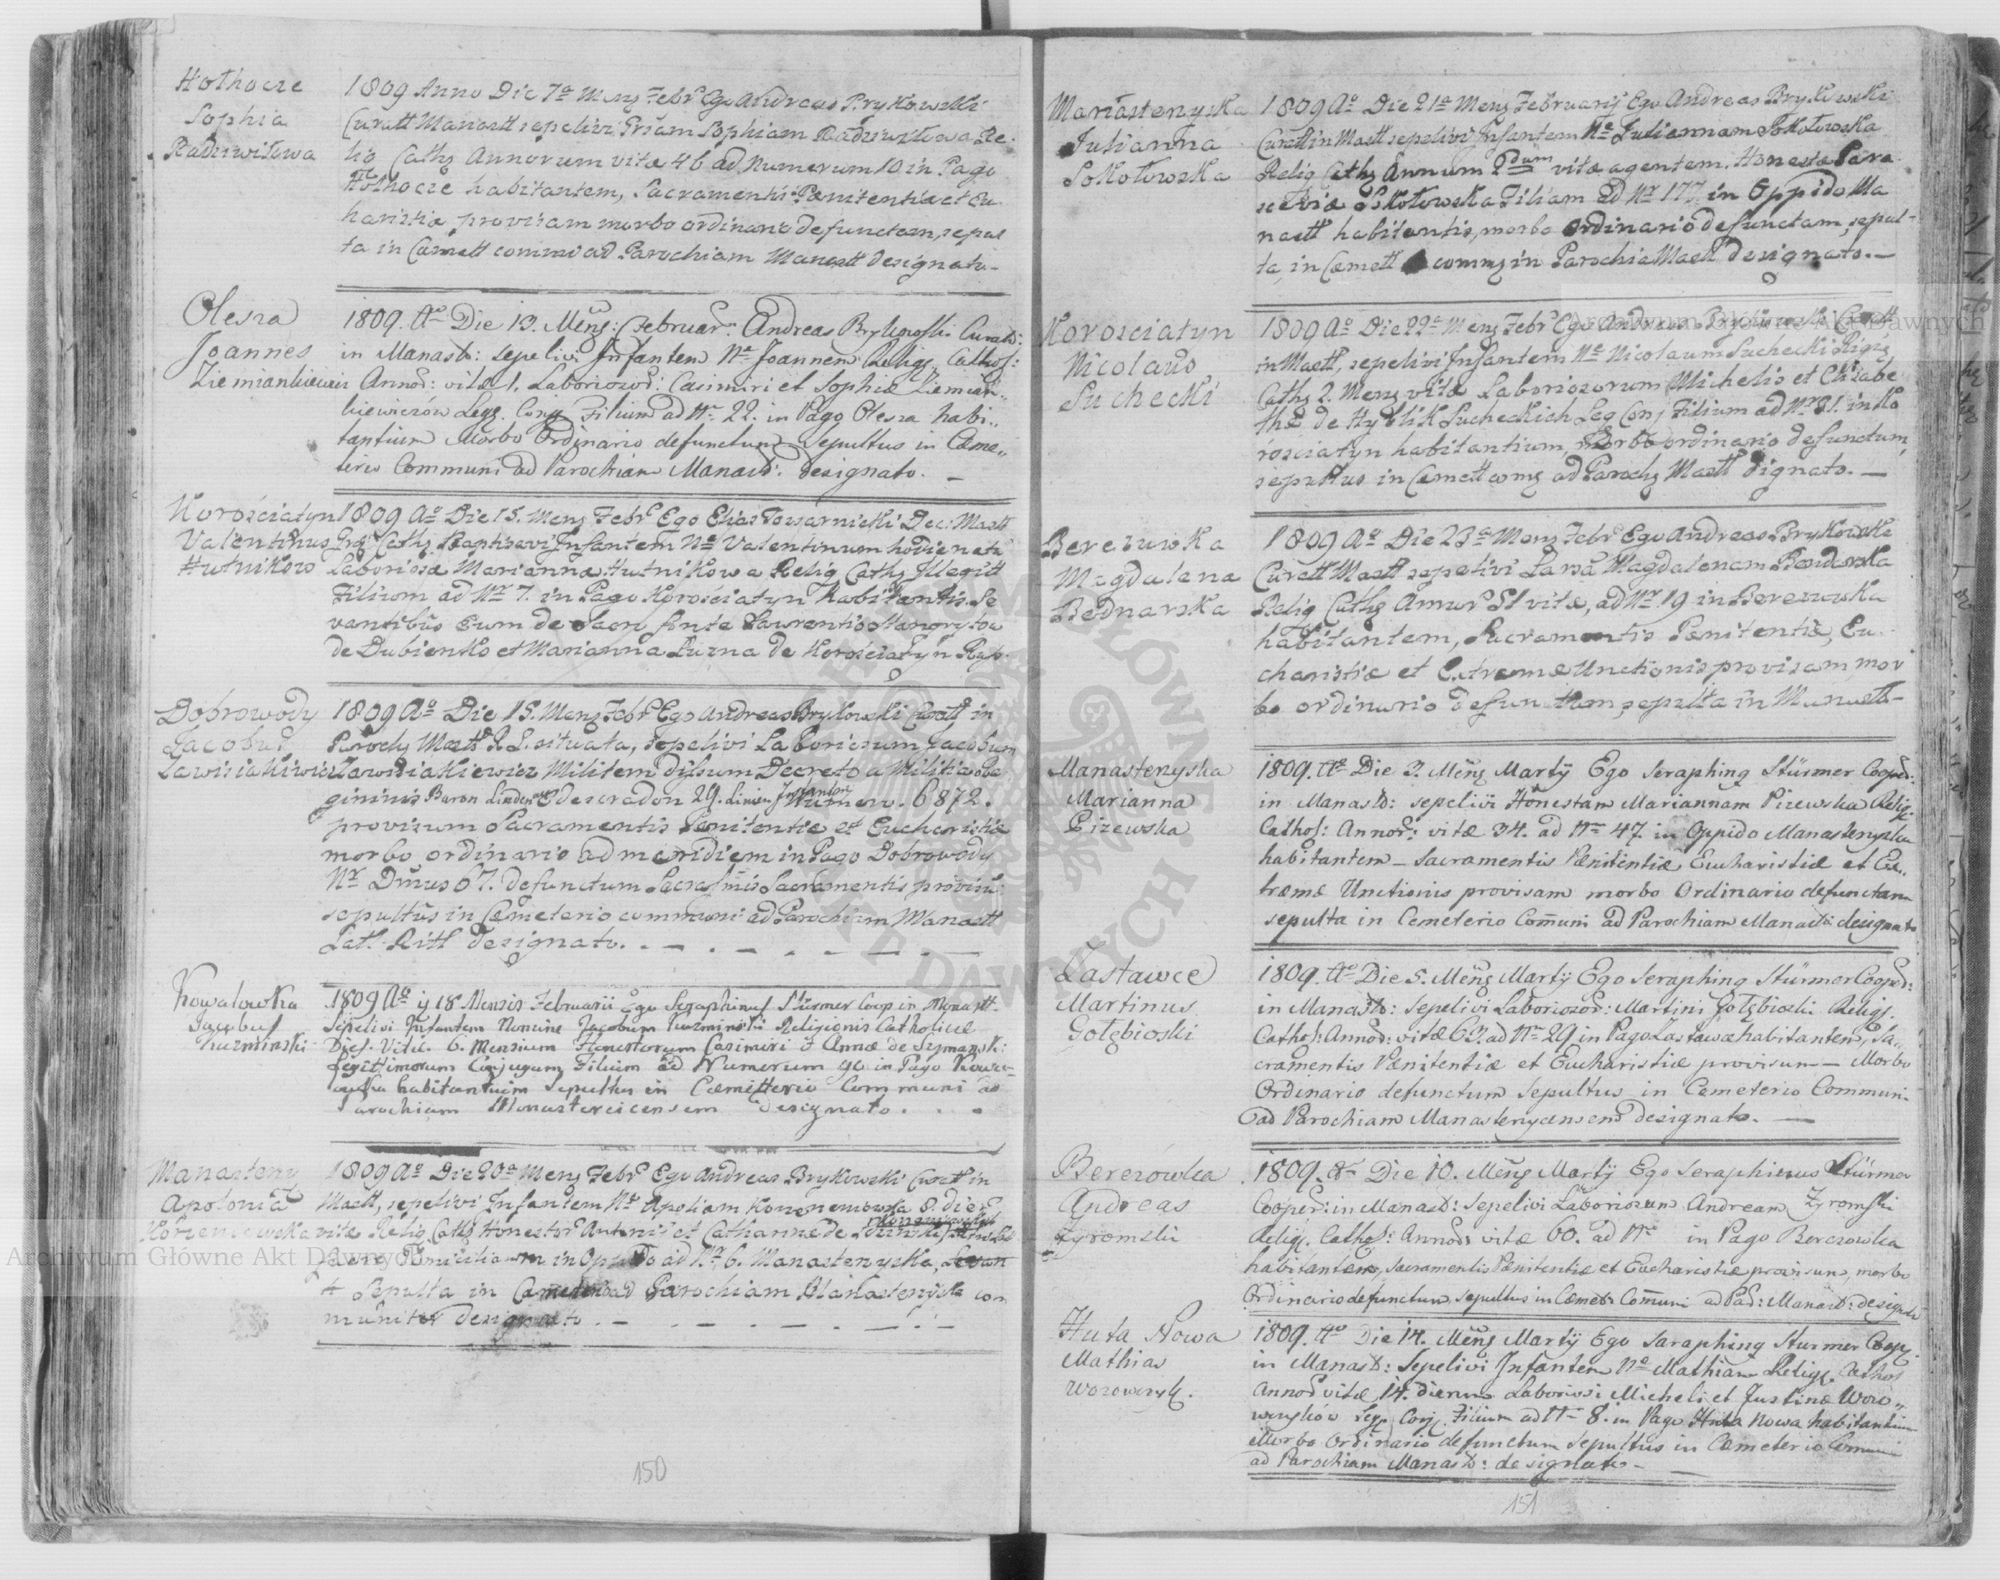 Hołhocze
Sophia
Radziwiłowa
1809 Anno Die 7a Mens Febr Ego Andreas Brykowski
Curatt Manastt sepelivi Sophiam Radziwiłowa Re-
lig Cath Annorum vitæ 46 ad Numerum 10 in Pago
Hołhocze habitantem, Sacramentis Pænitentiæ et Eu
haristiæ provisam morbo ordinario defunctam, sepul
ta in Cæmett commu ad Parochiam Manastt designato-
Olesza
Joannes
Ziemiankiewicz
1809. Ao Die 13. Mens: Februar: Andreas Brykowski Curat:
in Manast: sepelivi Infantem Ne Joannem Relig: Cathol:
Annor: vitæ 1. Laborioror: Casimiri et Sophiæ Ziemian..
kiewiczów Legt. Conj Filium ad Nr 22. in Pago Olesza habi..
tantium Morbo Ordinario defunctum Sepultus in Cæme..
terio Communi ad Parochiam Manast: designato. —
Korościatyn
Valentinus
Hutników
1809 Ao Die 15. Mens Febr Ego Elias Towarnicki Dec: Mastt
Cath Baptisavi Infantem Ne Valentinum hodie nat
Laboriosæ Marianna Hutnikowa Relig Cath Illegitt
Filium ad Nr 7. in Pago Korosciatyn habitantis. Le
vantibus eum de Sacr fonte Laurentio
de Dubienko et Marianna de Korosciatyn
Dobrowody
Jacobus
Lawisiakiwicz
1809 Ao Die 15. Mens Febr Ego Andreas Brykowski Curatt in
Paroch Mastt R L. situata, sepelivi Laboriosum Jacobum
Lawisiakiewicz Militem Decreto a Militia
giminis Baron Linden 29. Linien Infanter Numero. 6872.
provisum Sacramentis Penitentiæ et Eucharistiæ
morbo ordinario ad meridiem in Pago Dobrowody
Nr 67. defunctum Sacramentis provisu
sepultus in Cæmeterio communi ad Parochiam Manastt
Latt Ritt designato. . — . — . — . —
Kowalowka
Jacobus
Kuzminski
1809 Ao 18 Mensis Februarii Ego Seraphinus Stürmer Coop in Monastt.
Sepelivi Infantem Nomine Jacobum Kuzminski Religionis Catholicæ
Vitæ. 6. Mensium Honestorum Casimiri et Annæ de Szymansk:
Legittimorum Conjugum Filium ad Numerum 90 in Pago Kowa-
habitantium Sepultus in Cæmitterio Communi ad
Parochiam Monasterciensem Designato. . . .
Manasterz
Apolonia
Korzeniewska
1809 Ao Die 20a Mens Febr Ego Andreas Brykowski Curatt in
Mastt, sepelivi Infantem Ne Apoliam 8. dier
vitæ Relig Cath Honestor Antonii et Catharinæ de
in Oppido ad Nr. 6. Manasterzyska, Levan
t Sepulta in Cæmeterio ad Parochiam Manasterzyska com
muniter designato. — . — . — . — . —
150
Manasterzyska
Julianna
Sokołowska
1809 Ao Die 21a Mens Februarij Ego Andreas Brykowski
Curatt in Mastt sepelivi Infantem Ne Juliannam Sokołowska
Relig Cath Annum 2dum vitæ agentem. Honestæ Para
sceviæ Sokołowska Filiam ad Nr 177 in Oppido Ma
nastt habitantis, morbo Ordinario defunctam, sepul-
ta, in Cæmett comm in Parochia Mastt designato. —
Korosciatyn
Nicolaus
Suchecki
1809 Ao Die 22a Mens Febr Ego Andreas Brykowski Curatt
in Mastt, sepelivi Infantem Ne Nicolaum Suchecki Relig
Cath 2. Mens vitæ Laboriosorum Michelis et Elisabe
thæ de Hyblik Sucheckich Leg Conj Filium ad Nr 81. in Ko
rosciatyn habitantium, morbo ordinario defunctum,
sepultus in Cæmett comm ad Paroch Mastt dignato. —
Berezuwka
Magdalena
Bednarska
1809 Ao Die 23a Mens Febr Ego Andreas Brykowski
Curatt Mastt sepelivi Magdalenam Bendarska
Relig Cath Annor 51 vitæ, ad Nr. 19 in Berezuwka
habitantem, Sacramentis Pænitentiæ, Eu-
charistiæ et Extremæ Unctionis provisam, mor
bo ordinario defunctam, sepulta in Manastt-
Manasterzyska
Marianna
Pizewska
1809. Ao Die 3. Mens Martÿ Ego Seraphing Stürmer Cooper:
in Manast: sepelivi Honestam Mariannam Pizewska Relig:
Cathol: Annor: vitæ 34. ad Nr 47. in Oppido Manasterzyska
habitantem — Sacramentis Pænitentiæ, Eucharistiæ et Ex..
tremæ Unctionis provisam morbo Ordinario defunctam
sepulta in Cemeterio Com̄uni ad Parochiam Manast: designato
Zastawce
Martinus
Gołębioski
1809. Ao Die 5. Mens Martÿ Ego Seraphing Stürmer Cooper:
in Manast: sepelivi Laborioror: Martini Gołębioski Relig.
Cathol: Annor: vitæ 63. ad Nr 29 in Pago Zastawce habitantem, Sa..
cramentis Pænitentiæ et Eucharistiæ provisum — Morbo
Ordinario defunctum sepultus in Cemeterio Communi.
ad Parochiam Manasterzycensem designato. —
Berezówka
Andreas
Zyromski
1809. Ao Die 10. Mens Martÿ Ego Seraphinus Stürmer
Cooper: in Manast: Sepelivi Laboriosum Andream Zyromski
Relig. Cathol: Annor: vitæ 60. ad Nr in Pago Berezowka
habitantem, Sacramentis Pænitentiæ et Eucharistiæ provisum, morbo
Ordinario defunctum sepultus in Cæmet: Com̄uni ad Par: Manast: design
Huta Nowa
Mathias
Worowszk.
1809. Ao Die 14. Mens Martÿ Ego Saraphing Sturmer Coop.
in Manast: Sepelivi Infantem Ne Mathiam Relig. Cathol
Annor vitæ 14. dierum Laboriosi Micheli et Justinæ Woro..
Leg Conj. Filium ad Nr 8. in Pago Huta Nowa habitantium
Morbo Ordinario defunctum sepultus in Cæmeterio Communi
ad Parochiam Manast: designato. —
151
Archiwum Główne Akt Dawnych
Archiwum Główne Akt Dawnych
ARCHIWUM GŁÓWNE AKT DAWNYCH